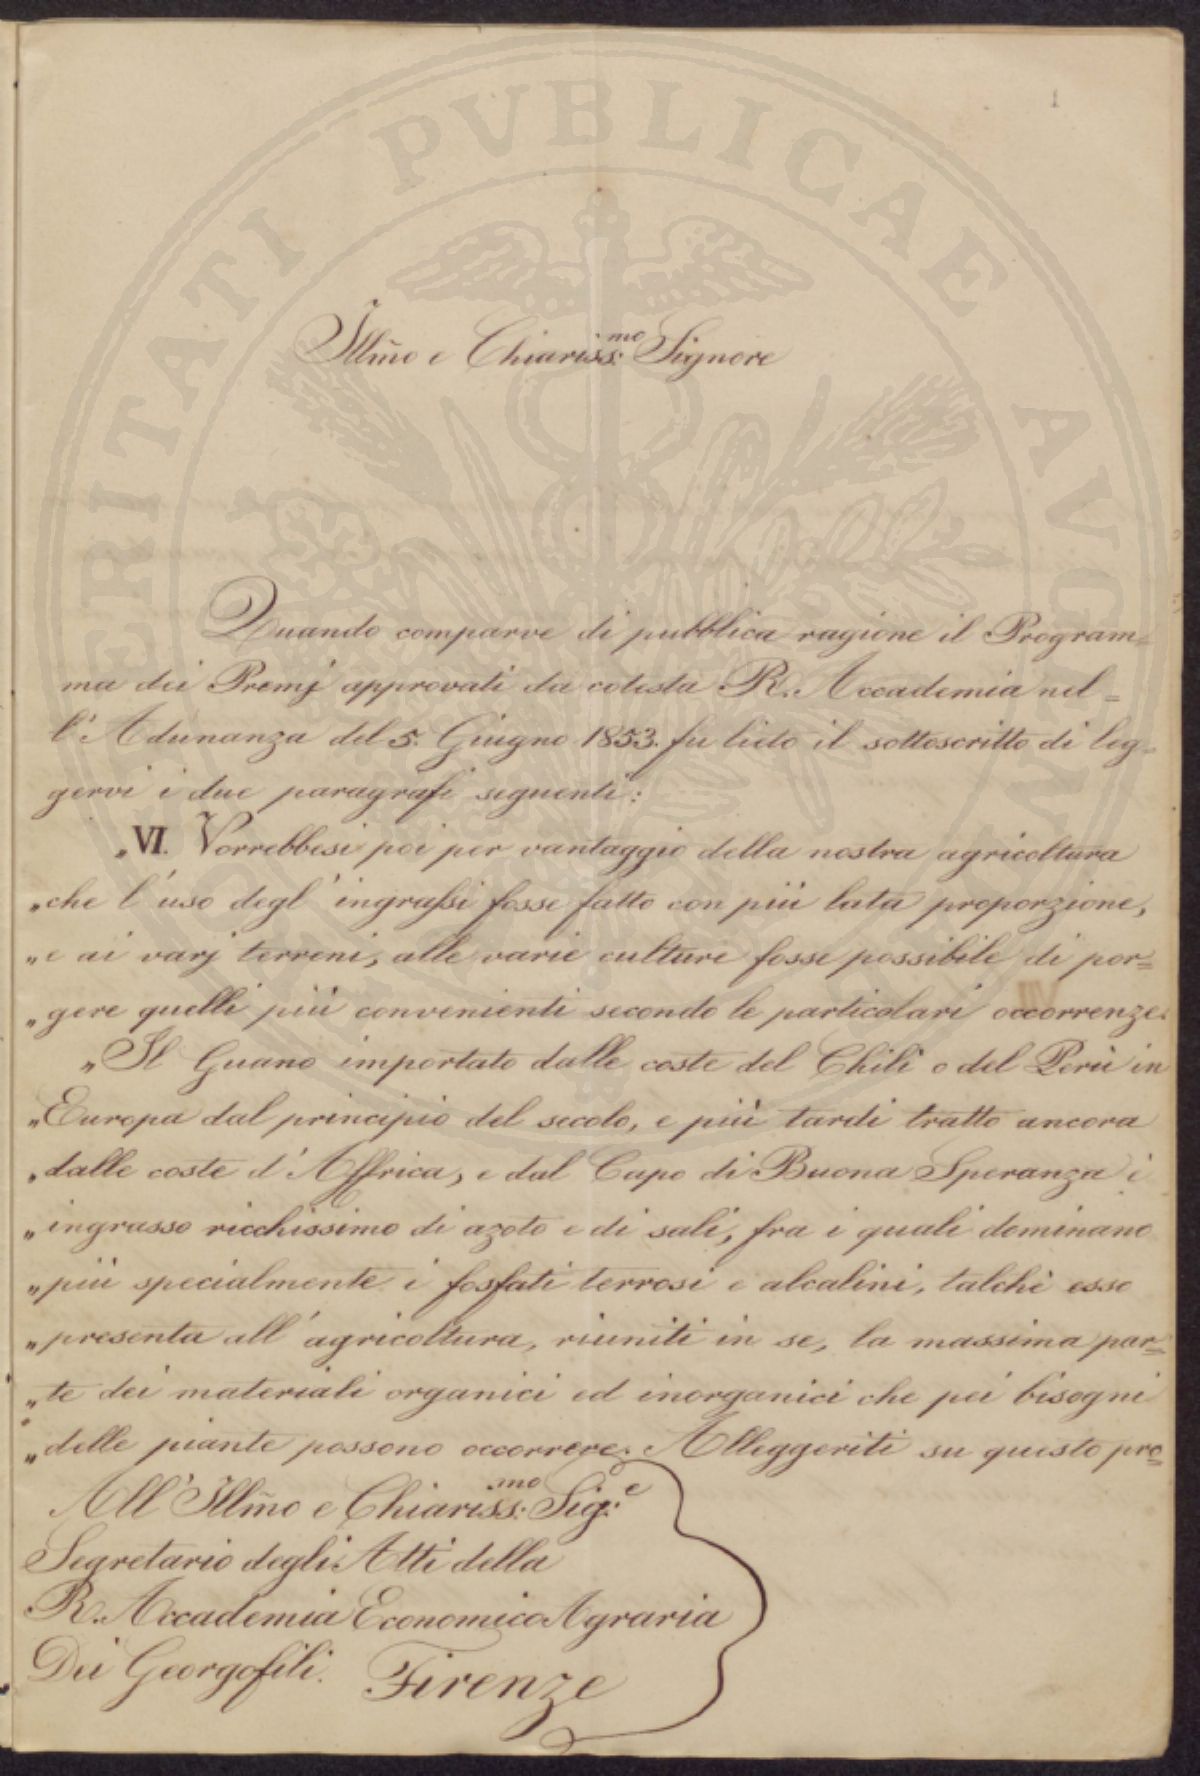 1
Illm̃o e Chiariss:mo Signore
Quando comparve di pubblica ragione il Program=
ma dei Premj approvati da cotesta R. Accademia nel=
l'Adunanza del 5. Giugno 1853. fu lieto il sottoscritto di leg=
gervi i due paragrafi seguenti:
„VI. Vorrebbesi poi per vantaggio della nostra agricoltura
„che l'uso degl'ingrassi fosse fatto con più lata proporzione,
„e ai varj terreni, alle varie culture fosse possibile di por=
„gere quelli più convenienti secondo le particolari occorrenze.
„Il Guano importato dalle coste del Chilì o del Perù in
„Europa dal principio del secolo, e più tardi tratto ancora
„dalle coste d'Affrica, e dal Capo di Buona Speranza è
„ingrasso ricchissimo di azoto e di sali, fra i quali dominano
„più specialmente i fosfati terrosi e alcalini, talchè esso
„presenta all'agricoltura, riuniti in se, la massima par=
„te dei materiali organici ed inorganici che pei bisogni
„delle piante possono occorrere. Alleggeriti su questo pro=
All'Illm̃o e Chiariss:mo Sig:e
Segretario degli Atti della
R. Accademia Economico Agraria
Dei Georgofili. Firenze